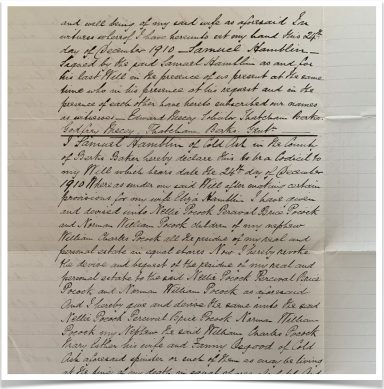 and well being of my said wife as aforesaid In
witness whereof I have hereunto set my hand this 24th
day of December 1910 – Samuel Hamblin –
Signed by the said Samuel Hamblin as and for
his last Will in the presence of us present at the same
time who in his presence at his request and in the
presence of each other have hereto subscribed our names
as witnesses – Edward Meecy Thatcham Berks
Godfrey Meecy Thatcham Berks Gent
I Samuel Hamblin of Cold Ash in the County
of Berks Baker hereby declare this to be a Codicil to
my Will which bears date the 24th day of December
1910 Whereas under my said Will after making certain
provisions for my wife Eliza Hamblin I have given
and devised unto Nellie Pocock Percival Brice Pocock
and Norman William Pocock children of my nephew
William Charles Pocock all the residue of my real and
personal estate in equal shares. Now I hereby revoke
the devise and bequest of the residue of my real and
personal estate to the said Nellie Pocock Percival Brice
Pocock and Norman William Pocock as aforesaid
And I hereby give and devise the same unto the said
Nellie Pocock Percival Brice Pocock Norman William
Pocock my Nephew the said William Charles Pocock
Mary his wife and Fanny Osgood of Cold
Ash aforesaid spinster or such of them as may be living
at the time of my death in equal